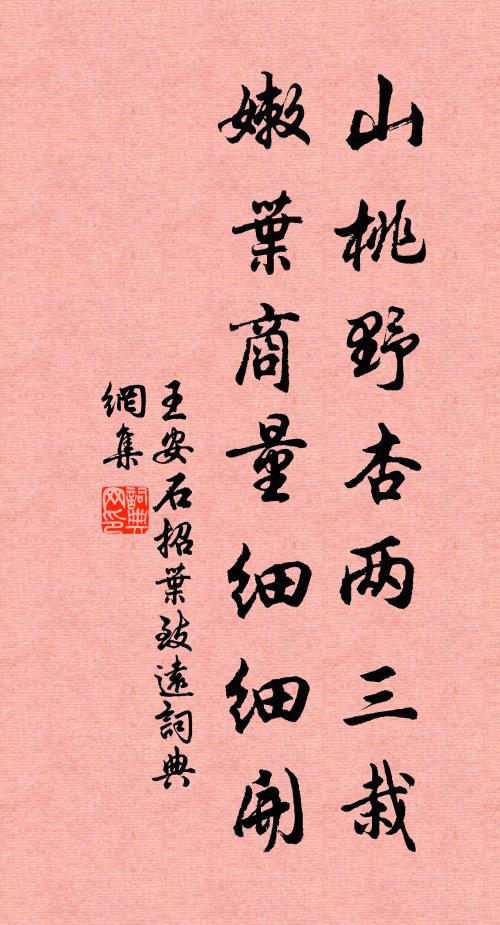 山桃野杏两三栽
嫩葉商量細細開
王安石招葉致遠詞典
網集
詞典
网印